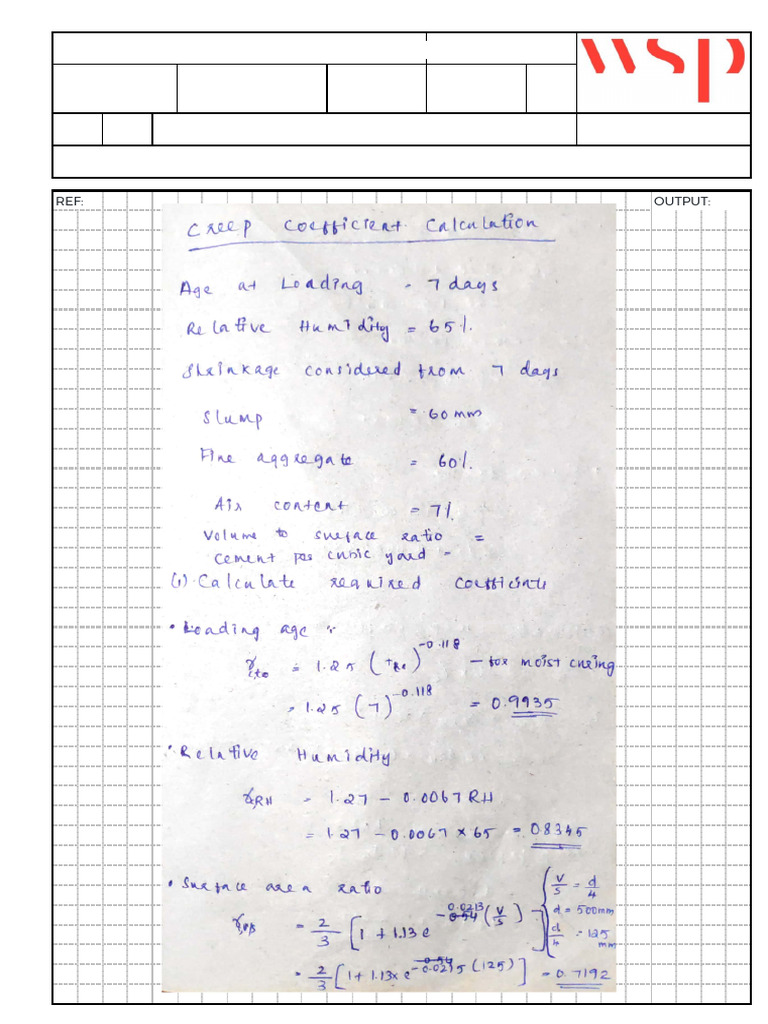 wsp
REF:
OUTPUT:
Creep Coefficient Calculation
Age at Loading = 7 days
Relative Humidity = 65%
Shrinkage considered from 7 days
Slump = 60 mm
Fine aggregate = 60%
Air content = 7%
Volume to surface ratio =
Cement per cubic yard =
(1) Calculate required coefficients
• Loading age :
γc,to = 1.25 (t)^-0.118 - for moist curing
= 1.25 (7)^-0.118 = 0.9935
• Relative Humidity
γRH = 1.27 - 0.0067 RH
= 1.27 - 0.0067 × 65 = 0.8345
• Surface area ratio
V/S = d/4
d = 500mm
d/4 = 125 mm
= 2/3 [1 + 1.13 e^-0.0213 (V/S)]
= 2/3 [1 + 1.13 × e^-0.0215 (125)] = 0.7192